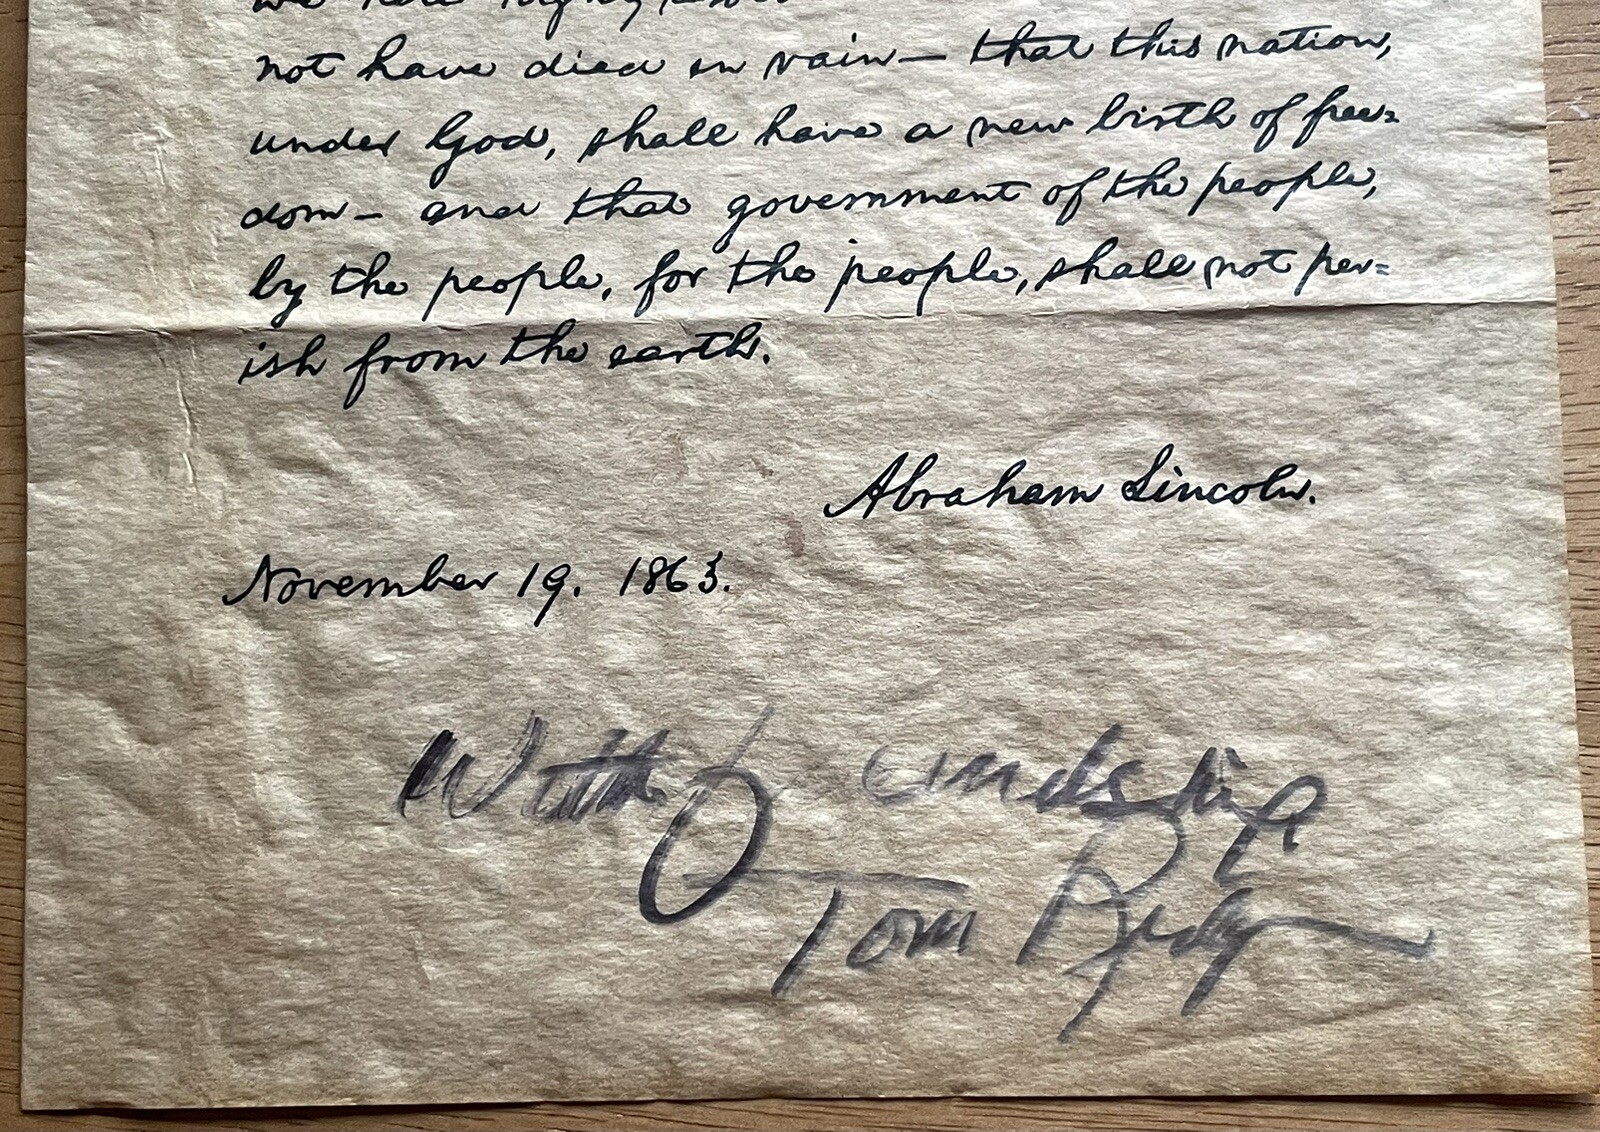 not have died in vain— that this nation,
under God, shall have a new birth of free=
dom— and that government of the people,
by the people, for the people, shall not per=
ish from the earth.
Abraham Lincoln.
November 19. 1863.
With
Tom